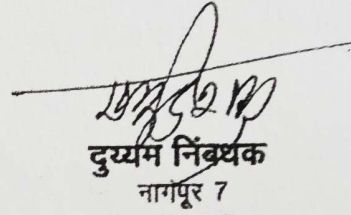 दुय्यम निंबधक
नागपूर 7